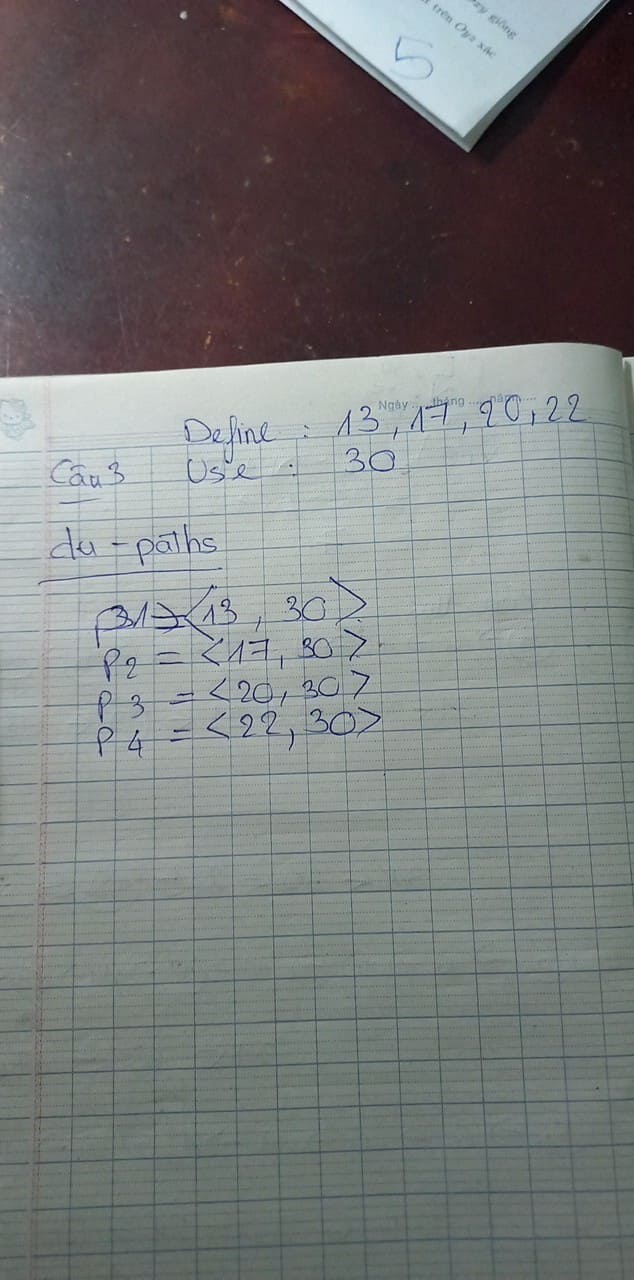 zy giống
trên Oyz xác
5
Ngày ..... tháng ..... năm .....
Define : 13, 17, 20, 22
Câu 3 Use : 30
du - paths
P1 = <13, 30>
P2 = <17, 30>
P3 = <20, 30>
P4 = <22, 30>